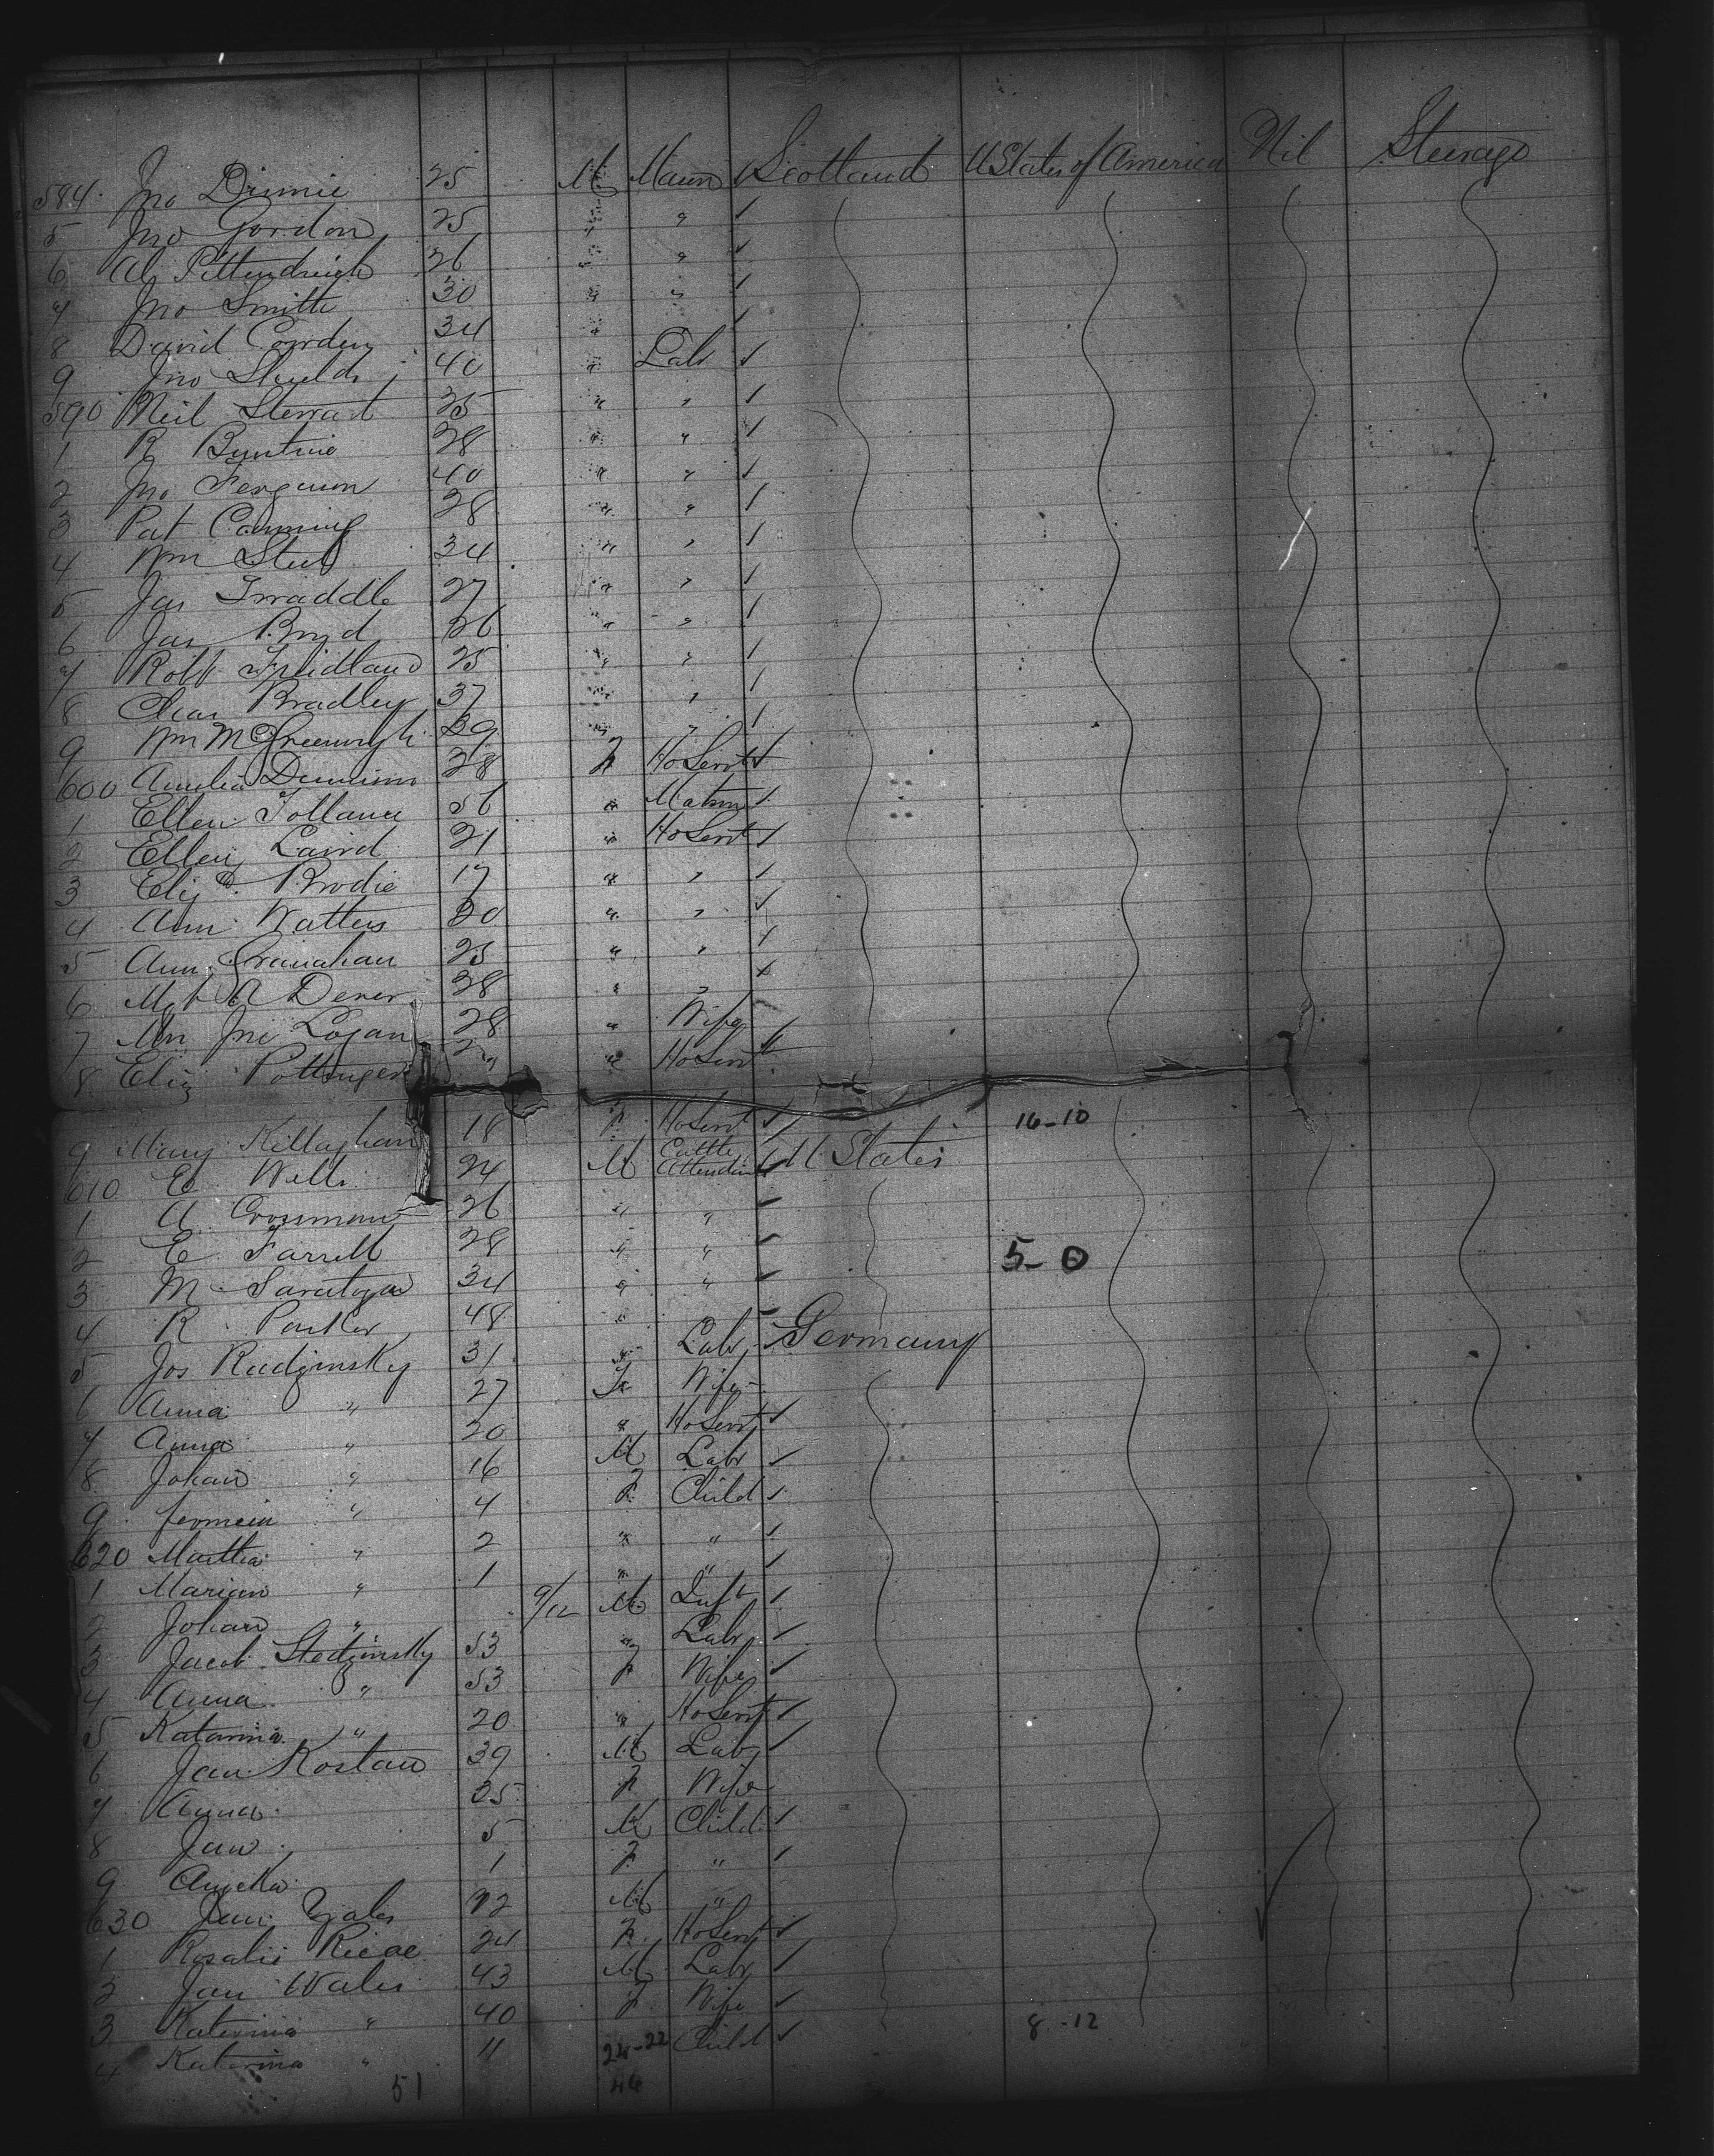 584 Jno Dinnie 25 M Mason Scotland U States of America Nil Steerage
5 Jno Gordon 25 " "
6 Al Pittendreigh 26 " "
7 Jno Smith 30 " "
8 David Cowden 34 "
9 Jno Shields 40 " Labr
590 Neil Stewart 25 " "
1 R Buntine 28 " "
2 Jno Ferguson 40 " "
3 Pat Canning 28 " "
4 Wm Steel 34 " "
5 Jas Twaddle 27 " "
6 Jas Boyd 26 " "
7 Robt 25 " "
8 Chas Bradley 37 " "
9 Wm 39 " "
600 Amelia 28 F Ho Servt
1 Ellen 56 " Matron
2 Ellen Laird 21 " Ho Servt
3 Eliz th Brodie 17 " "
4 Ann Watters 20 " "
5 Ann Granahan 25 " "
6 A Dever 28 " "
7 Mrs Jno Logan 28 " Wife
8 Eliz Pottinger " Ho Servt
9 Mary Killaghan 18 F Ho Servt 16-10
610 E Wells 24 M Cattle Attendant U States
1 A Crossman 26 " "
2 E Farrell 28 " " 5-0
3 M Saratoga 34 " "
4 R Parker 48 "
5 Jos Rudzinsky 31 " Labr Germany
6 Anna " 27 F Wife
7 Anna " 20 " Ho Servt
8 Johan " 16 M Labr
9 " 4 F Child
620 Martha " 2 " "
1 Marian " 1 " "
2 Johan " 9/12 M Inft
3 Jacob 53 " Labr
4 Anna " 53 F Wife
5 Katarina " 20 " Ho Servt
6 Jan Rostan 39 M Labr
7 Anna 35 F Wife
8 Jan 5 M Child
9 1 F "
630 Jan M "
1 Rosalie 24 F Ho Servt
2 Jan Wales 43 M Labr
3 Katerina " 40 F Wife 8-12
4 Katerina " 11 24-22 Child
51 46